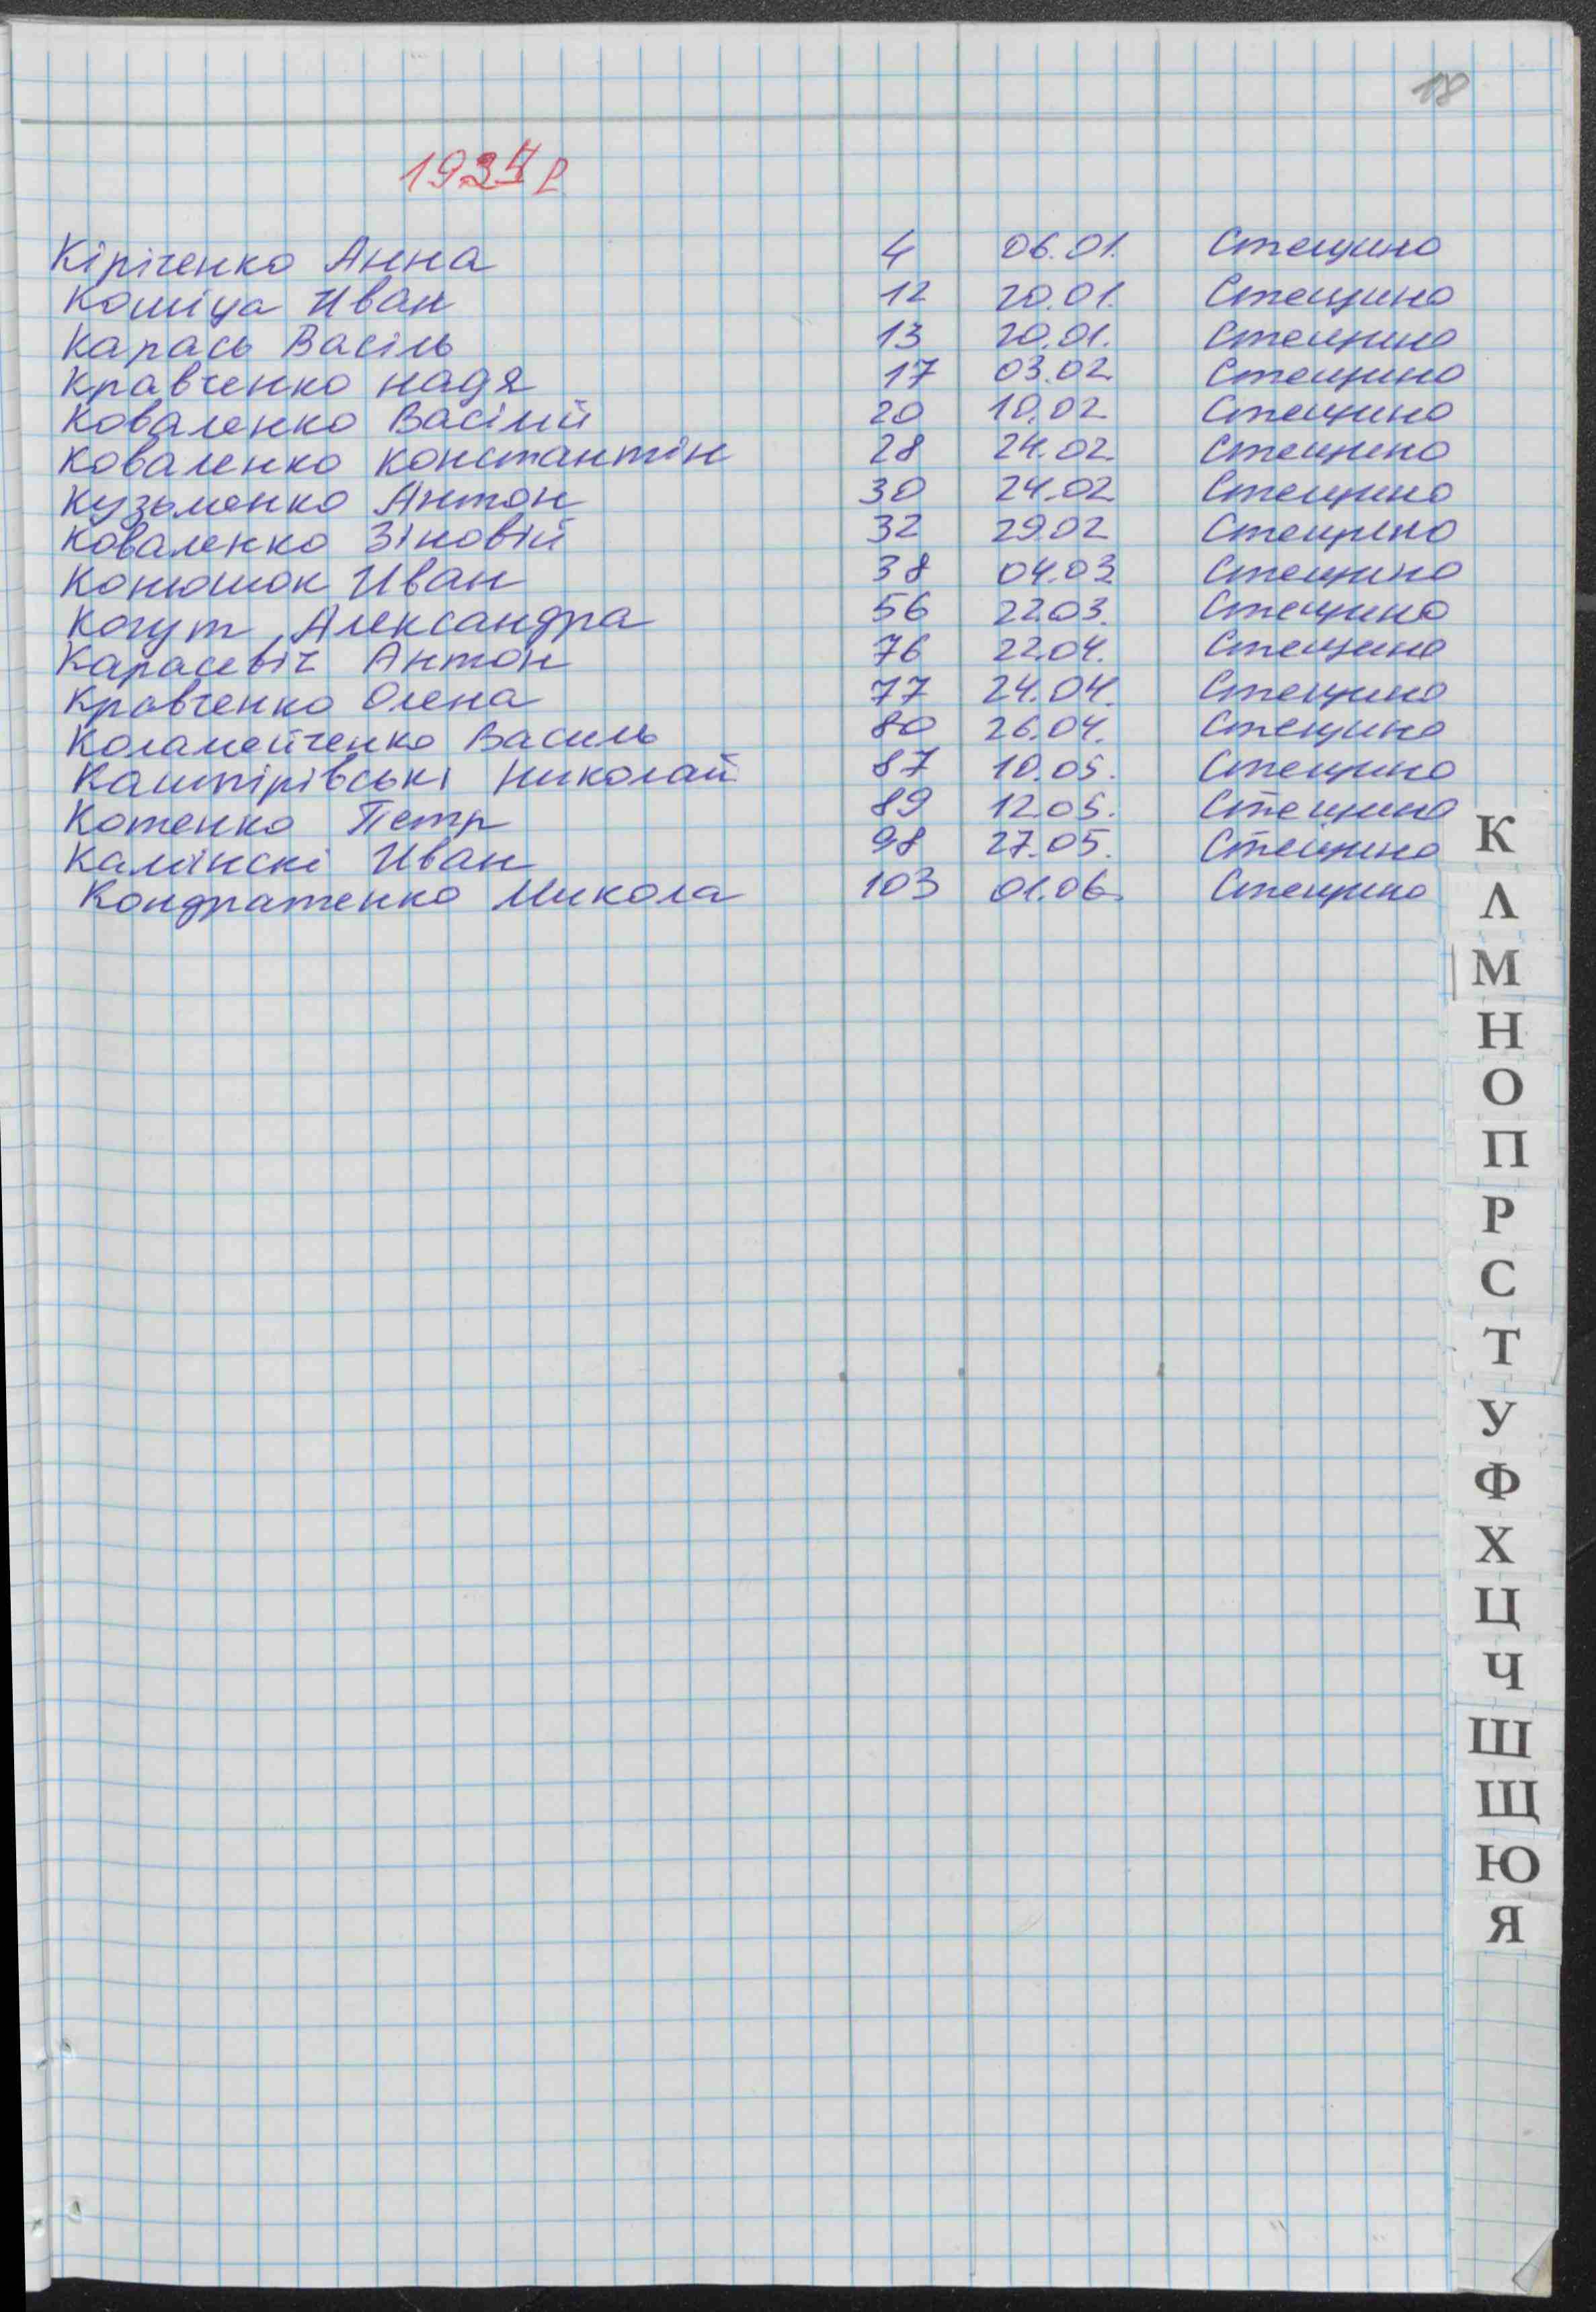 18
1934 р
Кіріченко Анна 4 06.01. Стещино
Кошіца Иван 12 20.01. Стещино
Карась Васіль 13 20.01. Стещино
Кравченко Надя 17 03.02 Стещино
Коваленко Васілій 20 10.02 Стещино
Коваленко Константін 28 24.02 Стещино
Кузьменко Антон 30 24.02 Стещино
Коваленко Зіновій 32 29.02 Стещино
Конюшок Иван 38 04.03 Стещино
Когут Александра 56 22.03. Стещино
Карасевіч Антон 76 22.04. Стещино
Кравченко Олена 77 24.04. Стещино
Коламейченко Василь 80 26.04. Стещино
Кашпірівські Николай 87 10.05. Стещино
Котенко Петр 89 12.05. Стещино
Калінскі Иван 98 27.05. Стещино
Кондратенко Микола 103 01.06. Стещино
К
Л
М
Н
О
П
Р
С
Т
У
Ф
Х
Ц
Ч
Ш
Щ
Ю
Я